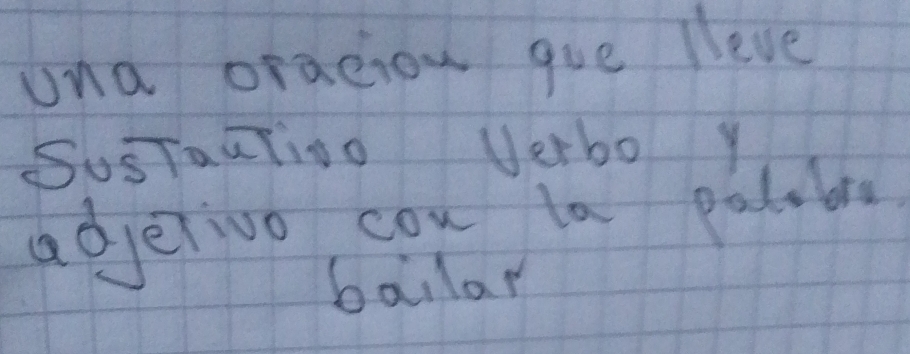 una oracion que lleve
Sustantivo Verbo y
adjetivo con la palabra
bailar